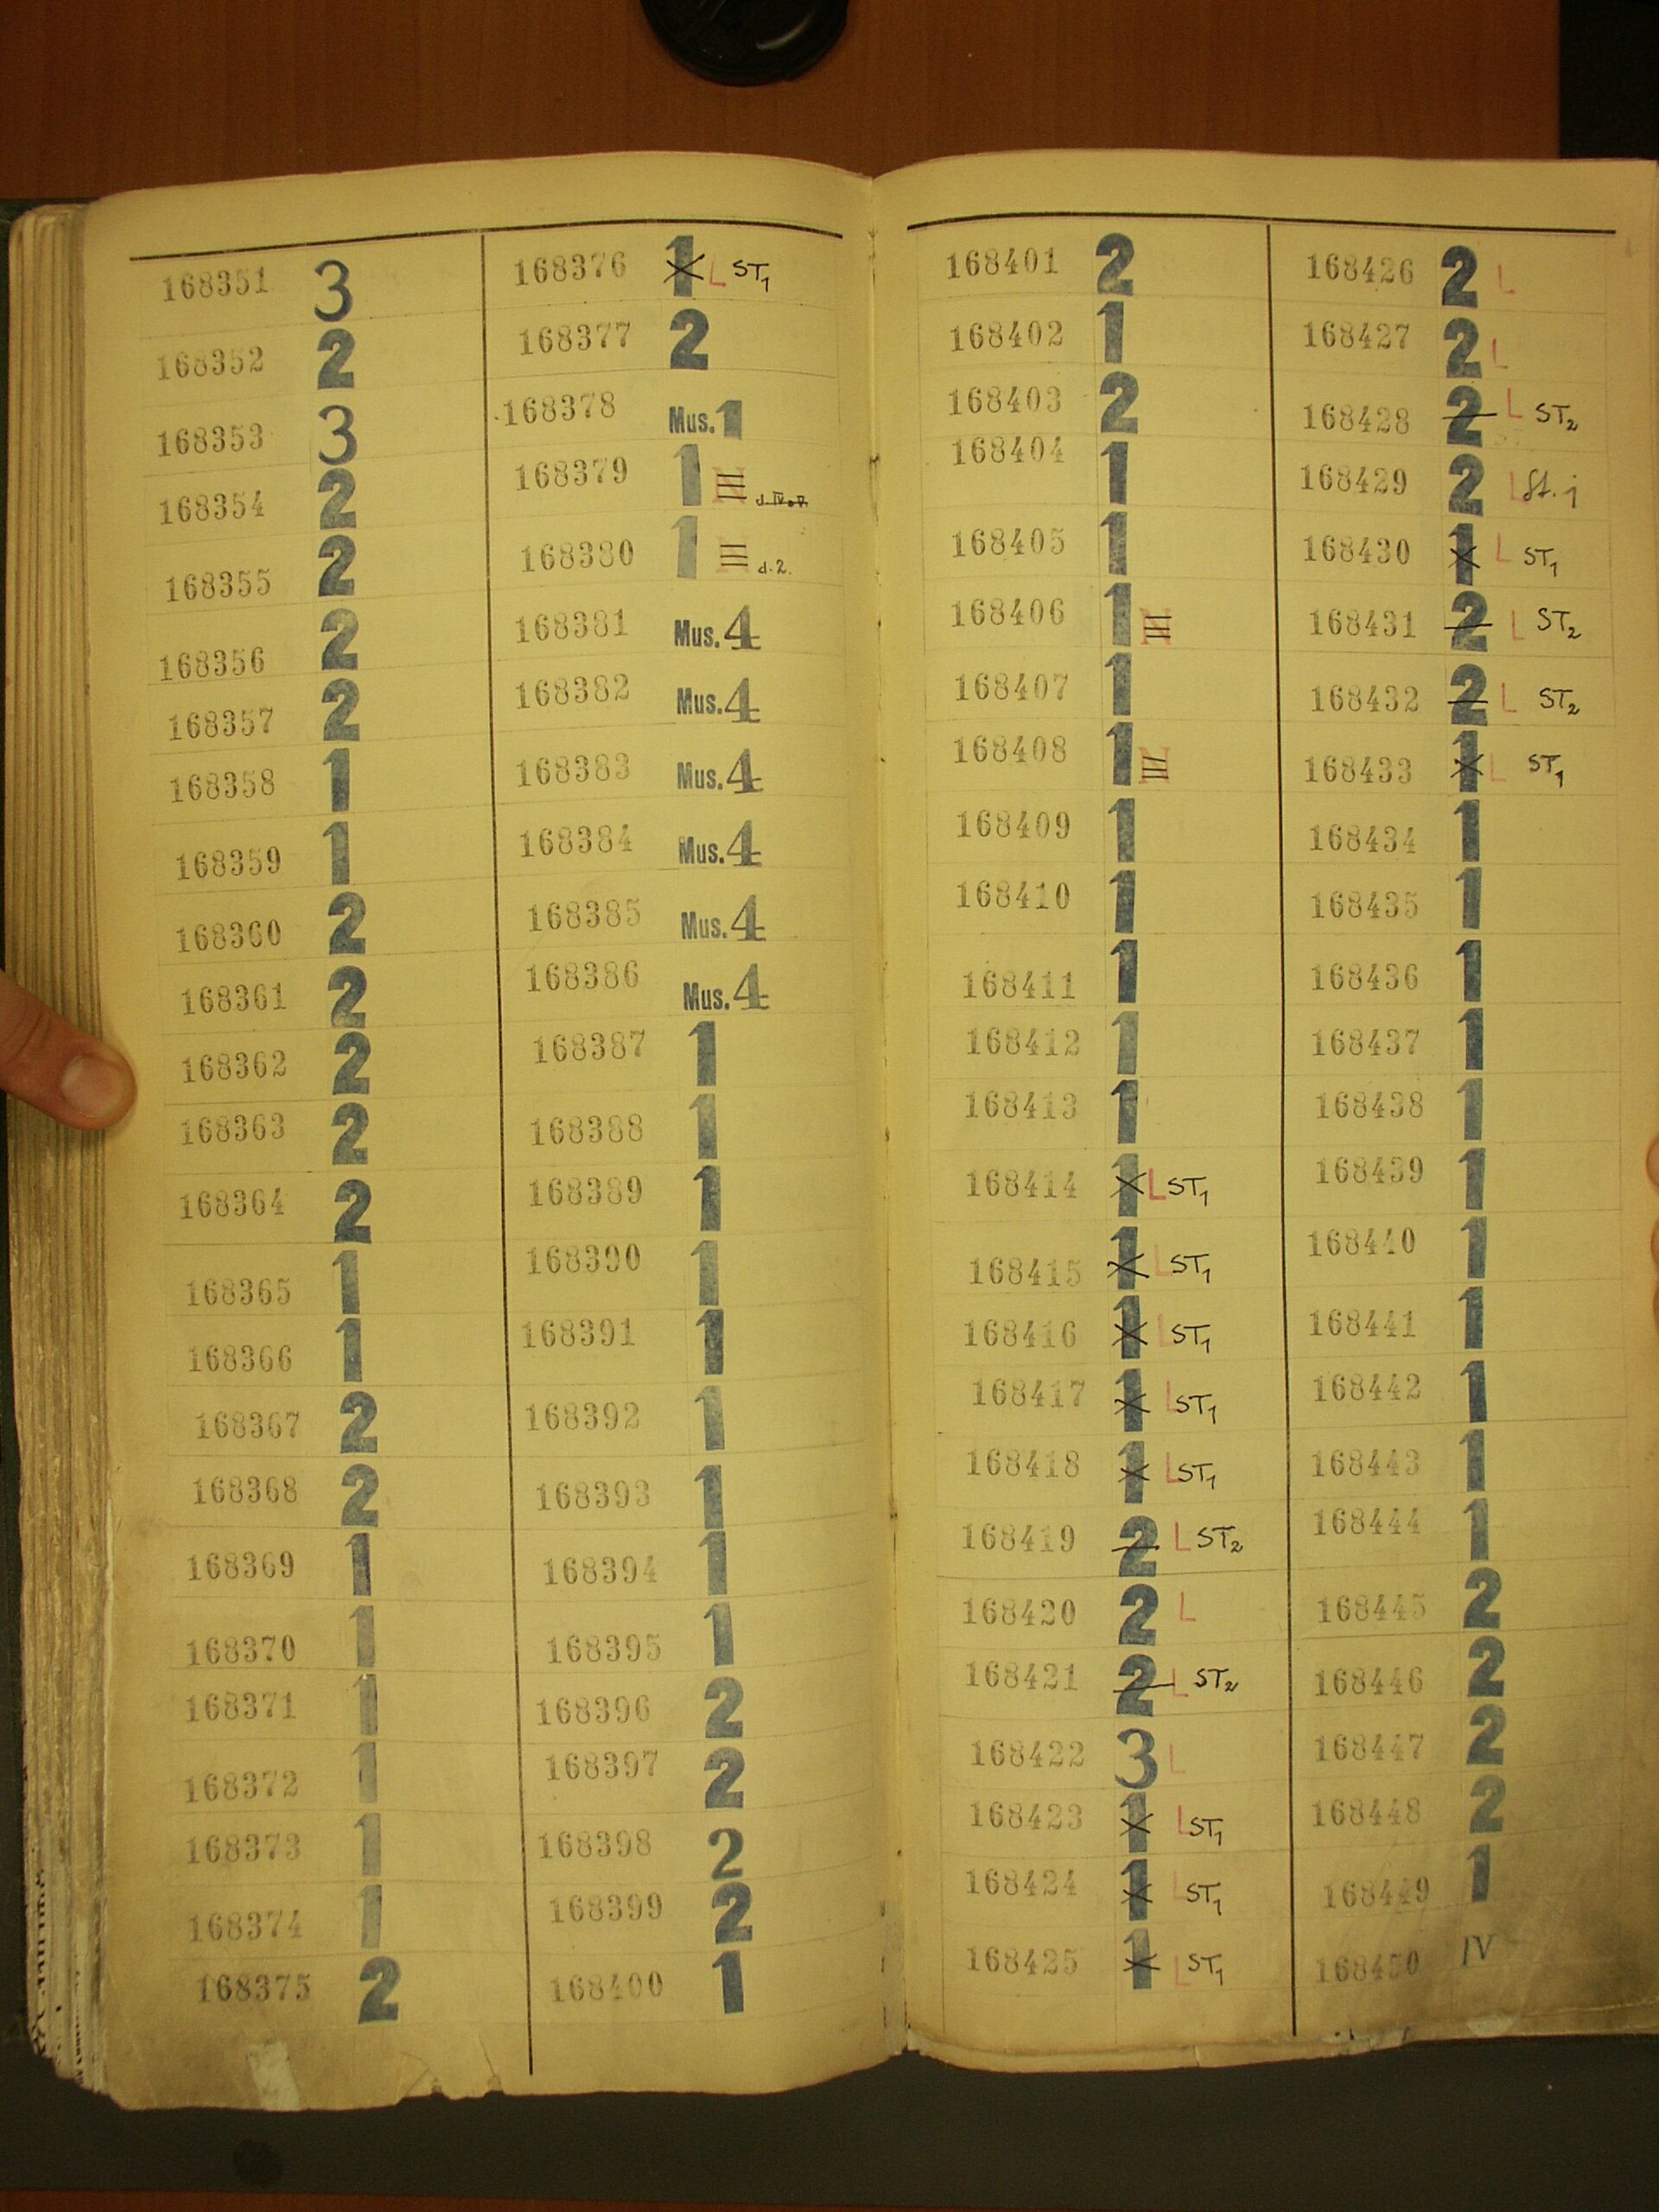 168351 3
168352 2
168353 3
168354 2
168355 2
168356 2
168357 2
168358 1
168359 1
168360 2
168361 2
168362 2
168363 2
168364 2
168365 1
168366 1
168367 2
168368 2
168369 1
168370 1
168371 1
168372 1
168373 1
168374 1
168375 2
168376 1 L ST1
168377 2
168378 Mus. 1
168379 1 N d. IV a V.
168380 1 N d. 2.
168381 Mus. 4
168382 Mus. 4
168383 Mus. 4
168384 Mus. 4
168385 Mus. 4
168386 Mus. 4
168387 1
168388 1
168389 1
168390 1
168391 1
168392 1
168393 1
168394 1
168395 1
168396 2
168397 2
168398 2
168399 2
168400 1
168401 2
168402 1
168403 2
168404 1
168405 1
168406 1 N
168407 1
168408 1 N
168409 1
168410 1
168411 1
168412 1
168413 1
168414 1 L ST1
168415 1 L ST1
168416 1 L ST1
168417 1 L ST1
168418 1 L ST1
168419 2 L ST2
168420 2 L
168421 2 L ST2
168422 3 L
168423 1 L ST1
168424 1 L ST1
168425 1 L ST1
168426 2 L
168427 2 L
168428 2 L ST2
168429 2 L St. j
168430 1 L ST1
168431 2 L ST2
168432 2 L ST2
168433 1 L ST1
168434 1
168435 1
168436 1
168437 1
168438 1
168439 1
168440 1
168441 1
168442 1
168443 1
168444 1
168445 2
168446 2
168447 2
168448 2
168449 1
168450 IV